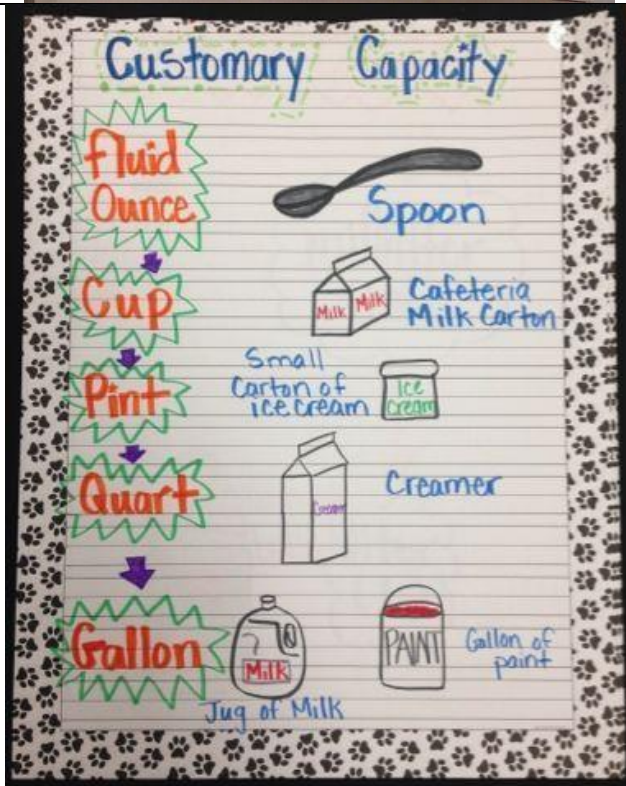 Customary Capacity
Fluid
Ounce
Spoon
Cup
Milk Milk
Cafeteria
Milk Carton
Pint
Small
Carton of
ice cream
Ice
cream
Quart
Cream
Creamer
Gallon
Milk
Jug of Milk
PAINT
Gallon of
paint